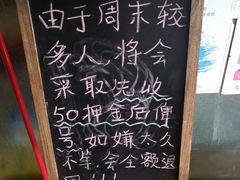 由于周末较
多人,将会
采取先收
50押金后俾
号,如嫌太久
不等,会全额退